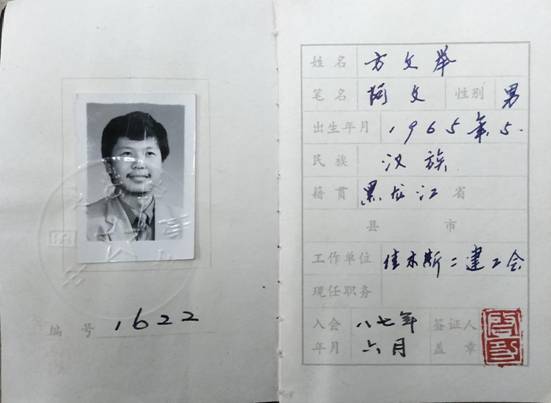 编号 1622
姓名 方文举
笔名 阿文 性别 男
出生年月 1965年5.
民族 汉族
籍贯 黑龙江省
县 市
工作单位 佳木斯二建工会
现任职务
入会 八七年 签证人
年月 六月 盖章